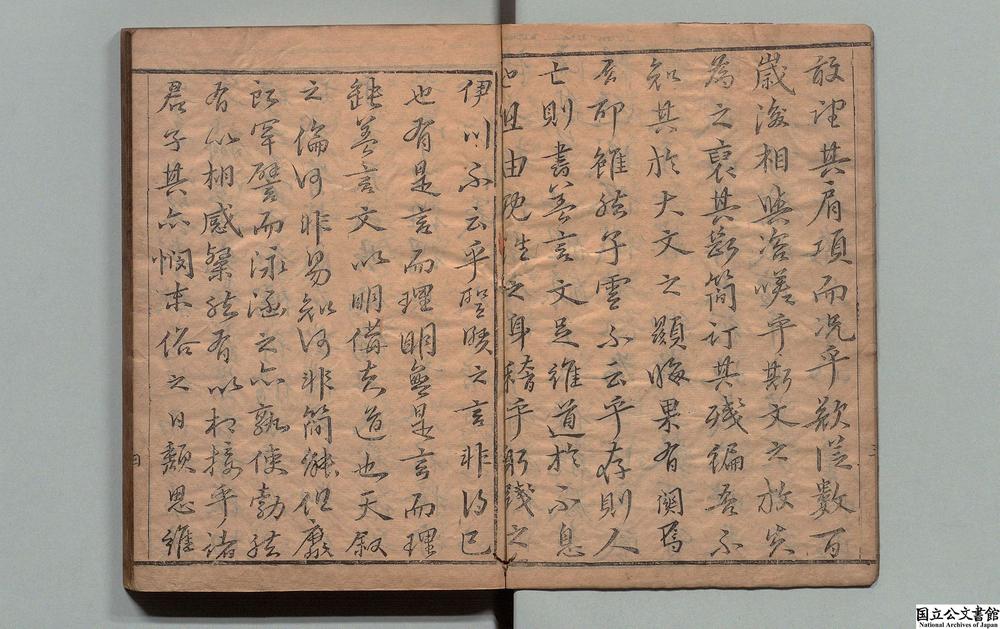 敢望其肩項而况乎欲從數百
歲後相與咨嗟乎斯文之放失
為之裒其斷簡订其殘編吾不
知其於大文之顯晦果有関焉
否耶雖然子雲不云乎存則人
亡則書善言文足維道於不息
也且由既生之身稽乎躬踐之
伊川不云乎聖賢之言非得已
也有是言而理明無是言而理
善言文以明備矣道也天叙
之倫何非易知何非簡能但
罕譬而泳涵之亦孰使勃然
有以相感粲然有以相接乎諸
君子其亦憫末俗之日頹思維
四
国立公文書館
National Archives of Japan